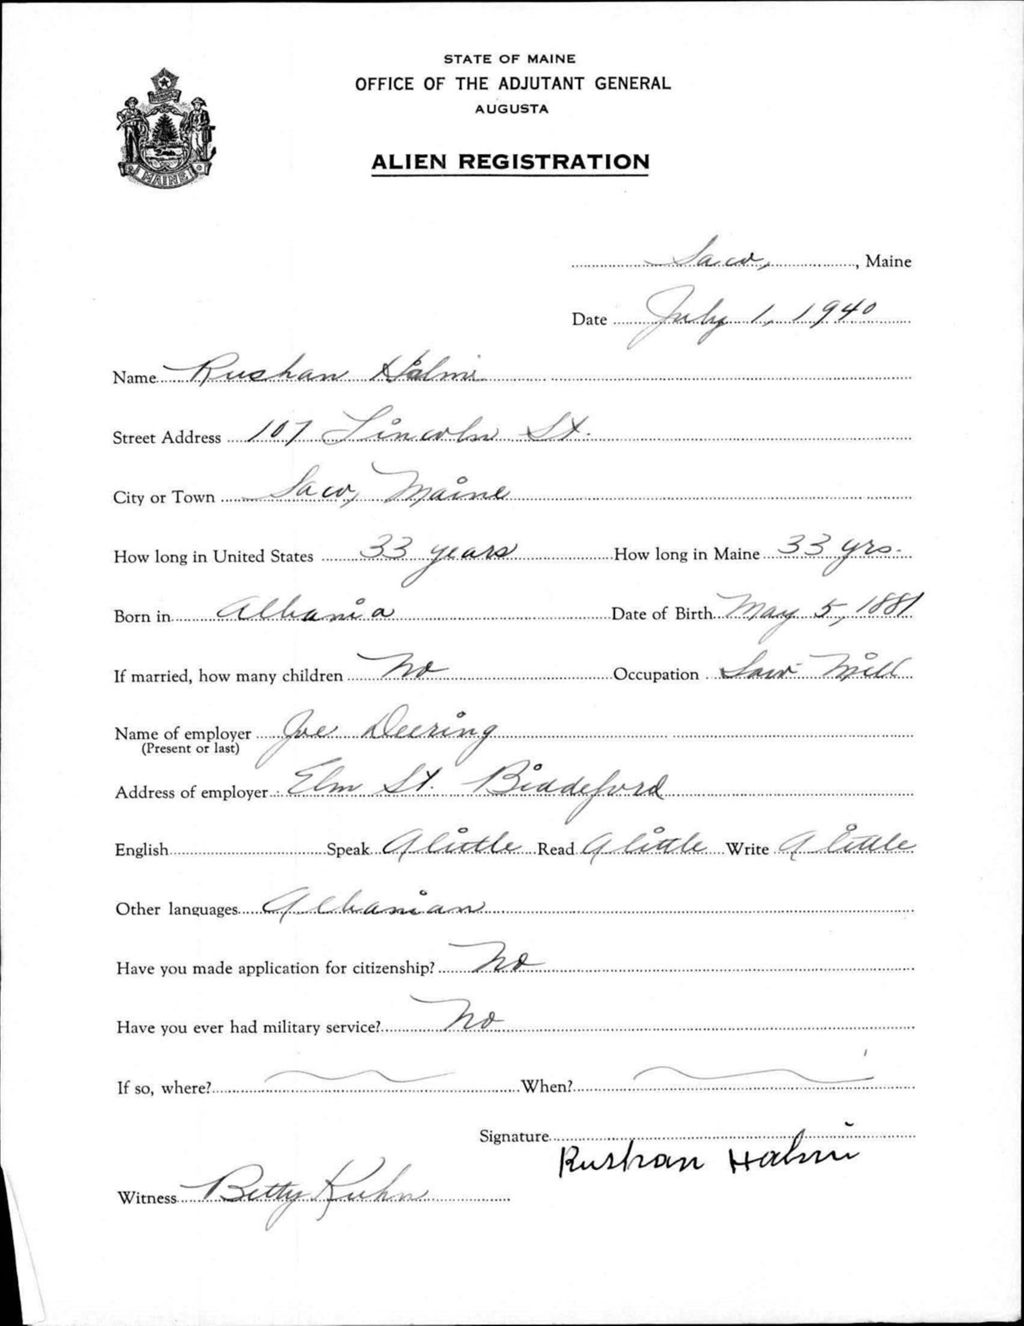 STATE OF MAINE
OFFICE OF THE ADJUTANT GENERAL
AUGUSTA
ALIEN REGISTRATION
MAINE
Saco, , Maine
Date July 1, 1940
Name Rushan Halmi
Street Address 107 Lincoln St.
City or Town Saco, Maine
How long in United States 33 years How long in Maine 33 yrs.
Born in Albania Date of Birth May 5, 1881
If married, how many children No Occupation Saw Mill
Name of employer Joe Deering
(Present or last)
Address of employer Elm St. Biddeford
English Speak A little Read A little Write A little
Other languages Albanian
Have you made application for citizenship? No
Have you ever had military service? No
If so, where? When?
Signature Rushan Halmi
Witness Betty Kuhn